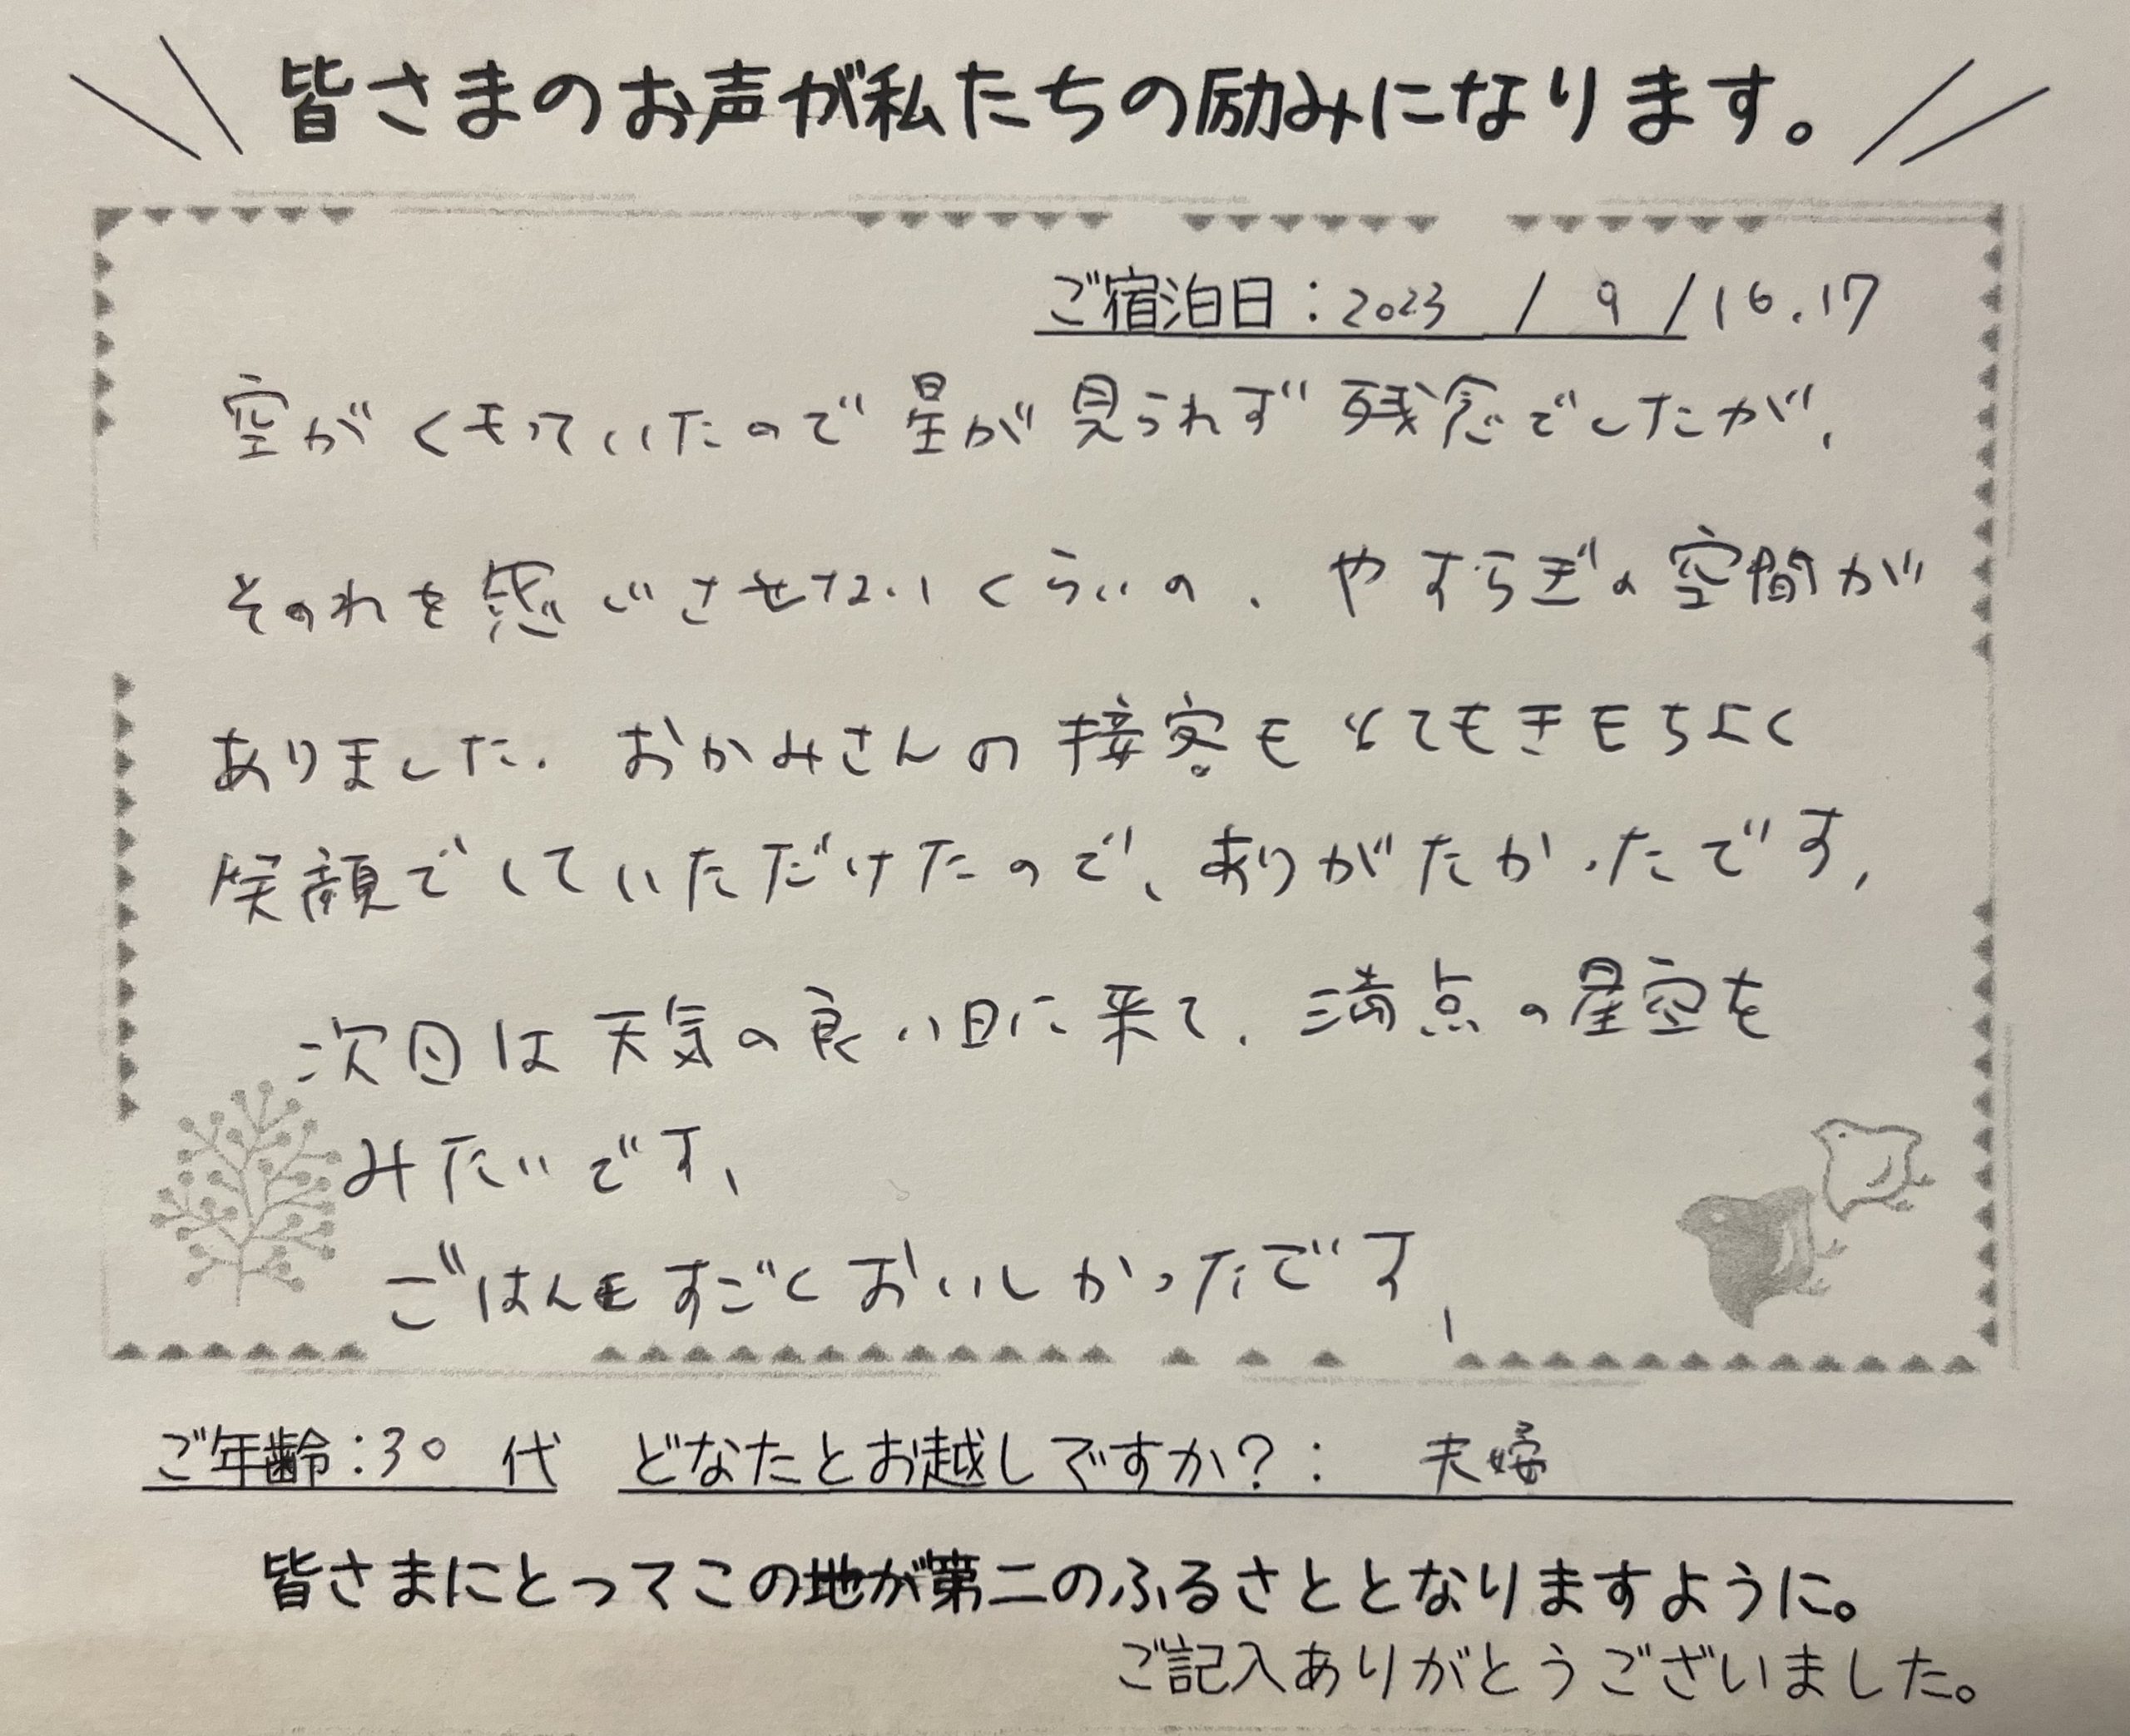 皆さまのお声が私たちの励みになります。
ご宿泊日：2023 / 9 / 16.17
空がくもっていたので星が見られず残念でしたが、
それを感じさせないくらいの、やすらぎの空間が
ありました。おかみさんの接客もとてもきもちよく
笑顔でしていただけたので、ありがたかったです。
次回は天気の良い日に来て、満点の星空を
みたいです。
ごはんもすごくおいしかったです。
ご年齢：30 代 どなたとお越しですか？： 夫婦
皆さまにとってこの地が第二のふるさととなりますように。
ご記入ありがとうございました。